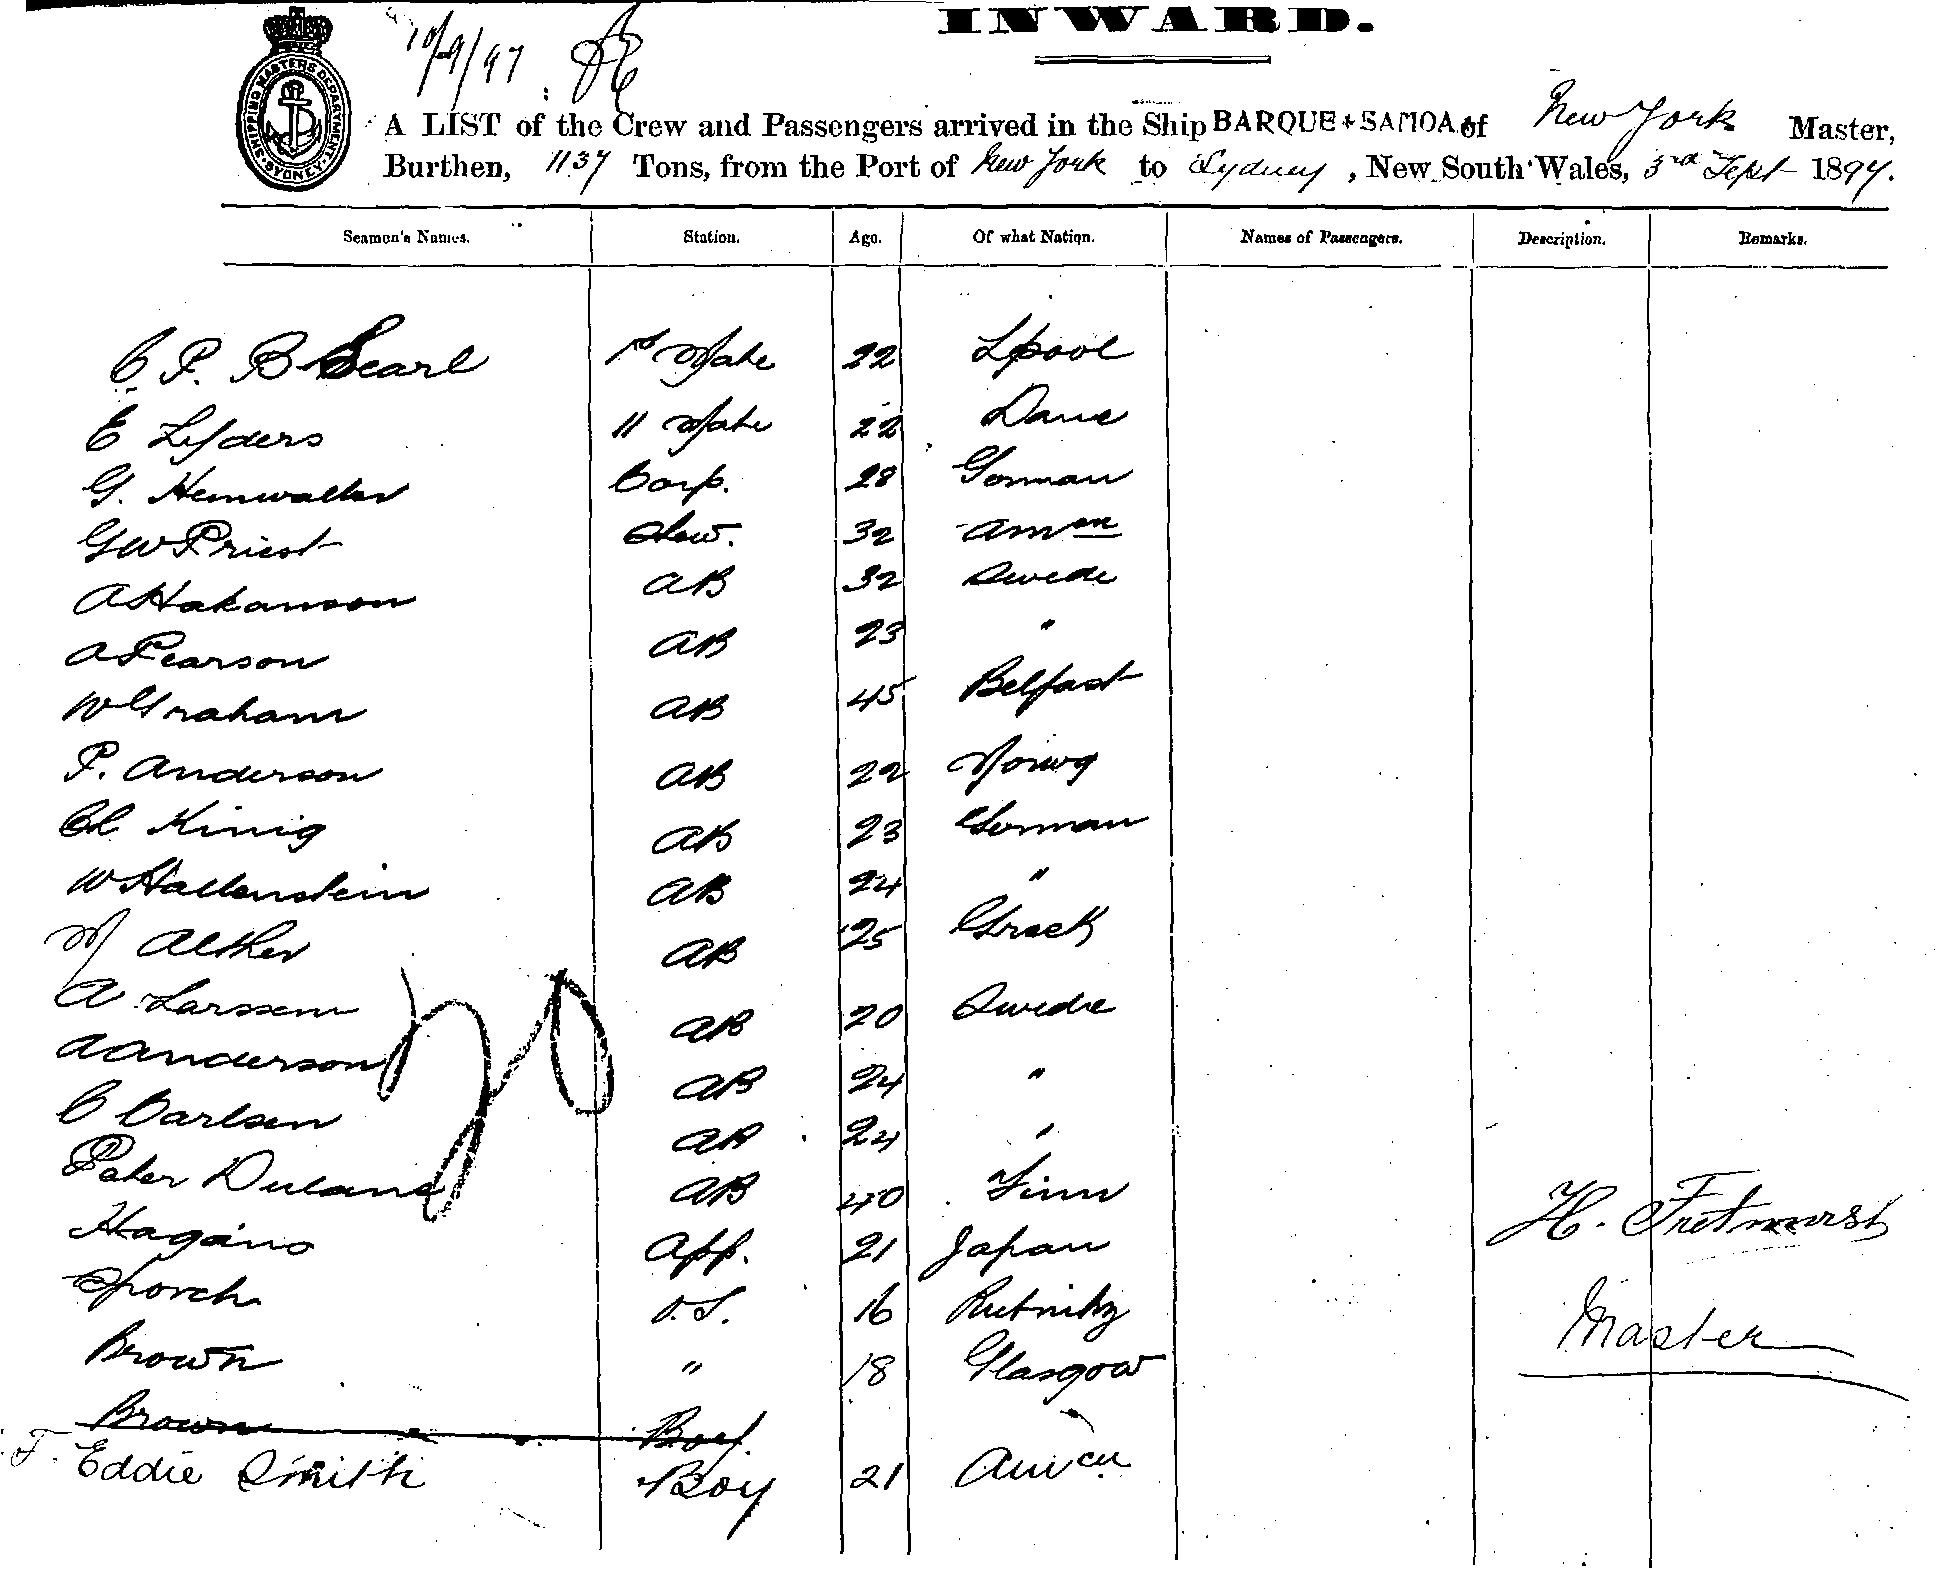 INWARD.
10/9/97
SHIPPING MASTERS DEPARTMENT SYDNEY
A LIST of the Crew and Passengers arrived in the Ship BARQUE SAMOA of New York Master,
Burthen, 1137 Tons, from the Port of New York to Sydney, New South Wales, 3rd Sept 1897.
Seamen's Names. Station. Age. Of what Nation. Names of Passengers. Description. Remarks.
C. P. B Searl 1st Mate 22 Lpool
E Lyders 11 Mate 22 Dane
G. Hemwalter Carp. 28 German
G W Priest Stew. 32 Amcn
A Hakanson AB 32 Swede
A Pearson AB 23 "
W Graham AB 45 Belfast
P. Anderson AB 22 Norwg
Ch Kinig AB 23 German
W Hallenstein AB 24 "
M Alther AB 25 Greek
A Larssen AB 20 Swede
A Anderson AB 24 "
C Carlsen AB 24 "
Peter AB 40 Finn
Hagano App. 21 Japan
Sporch O.S. 16
Brown " 18 Glasgow
Brown Boy.
F. Eddie Smith Boy 21 Amcn
20
H.
Master